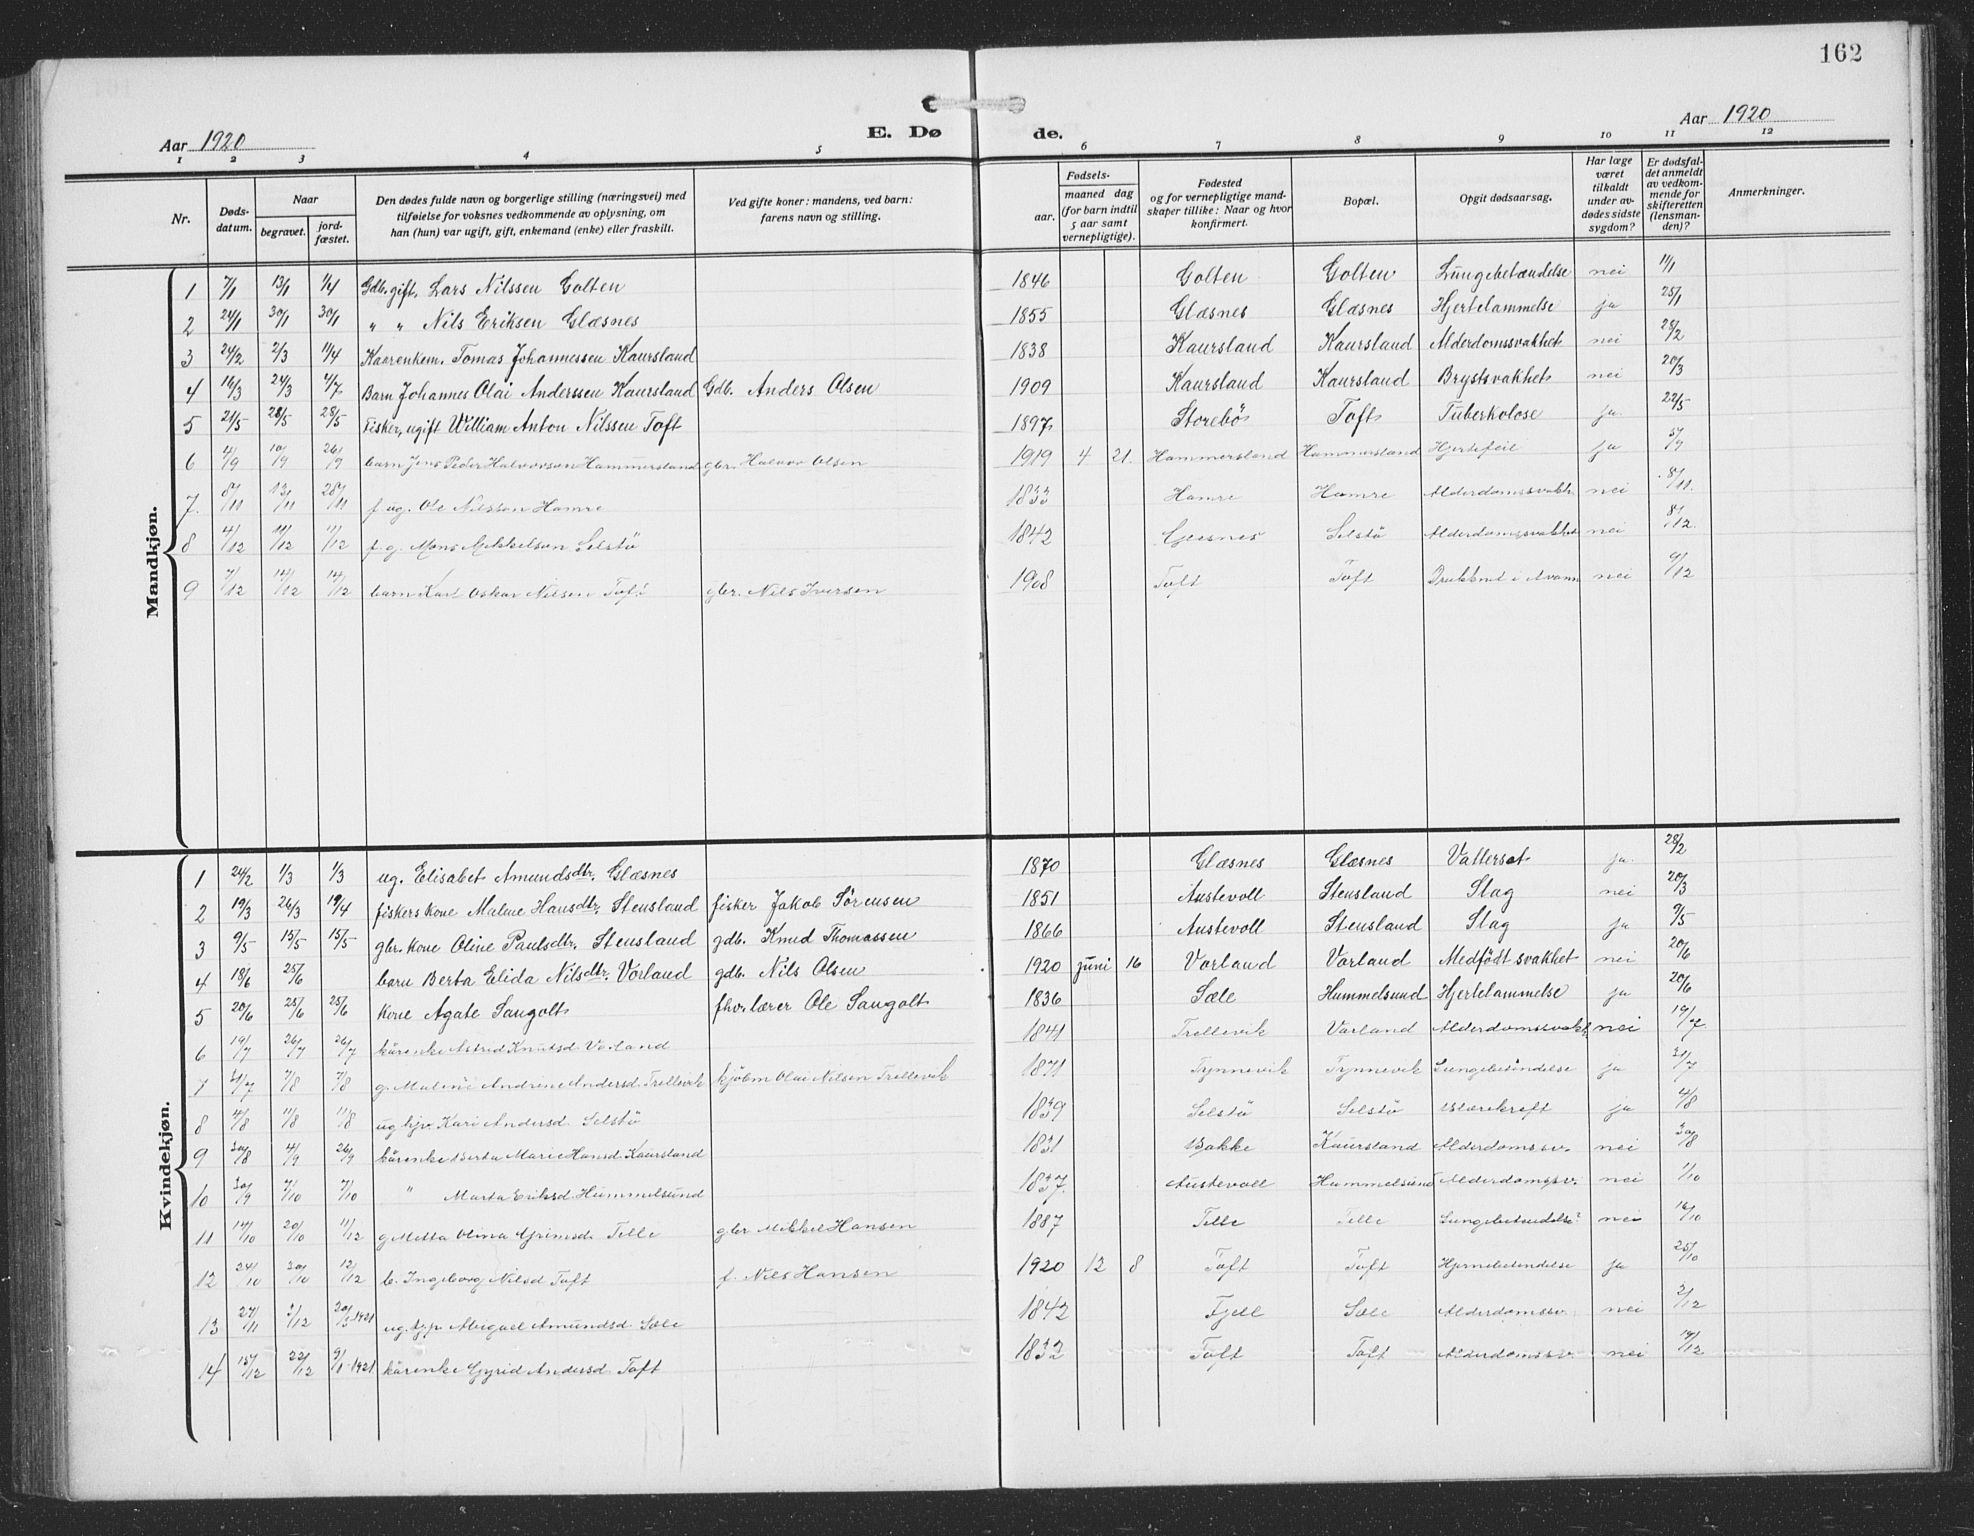 162
Aar 1920 E. Dø de. Aar 1920
1 2 3 4 5 6 7 8 9 10 11 12
Nr.
Døds-datum.
Naar
begravet.
jord-fæstet.
Den dødes fulde navn og borgerlige stilling (næringsvei) med tilføielse for voksnes vedkommende av oplysning, om han (hun) var ugift, gift, enkemand (enke) eller fraskilt.
Ved gifte koner: mandens, ved barn: farens navn og stilling.
Fødsels-
aar.
maaned dag (for barn indtil 5 aar samt vernepligtige).
Fødested og for vernepligtige mandskaper tillike: Naar og hvor konfirmert.
Bopæl.
Opgit dødsaarsag.
Har læge været tilkaldt under avdødes sidste sygdom?
Er dødsfaldet anmeldt av vedkommende for skifteretten (lensmanden)?
Anmerkninger.
Mandkjøn.
1 7/1 13/1 1/4 Gdb. gift, Lars Nilssen Golten 1846 Golten Golten Lungebetændelse nei 11/1
2 24/1 30/1 30/1 " " Nils Eriksen Glæsnes 1855 Glæsnes Glæsnes Hjertelammelse ja 25/1
3 24/2 2/3 11/4 Kaarenkem. Tomas Johannessen Kaursland 1838 Kaursland Kaursland Alderdomssvakhet nei 28/2
4 16/3 24/3 4/7 Barn Johannes Olai Anderssen Kaursland Gdb. Anders Olsen 1909 Kaursland Kaursland Brystsvakhet nei 20/3
5 21/5 28/5 28/5 Fisker, ugift William Anton Nilssen Toft 1897 Storebö Toft Tuberkolose ja 22/5
6 4/9 10/9 26/9 barn Jens Peder Halvorson Hammersland gbr. Halvor Olsen 1919 4 21. Hammersland Hammersland Hjertefeil ja 5/9
7. 8/11 13/11 28/11 f. ug. Ole Nilsson Hamre 1833 Hamre Hamre Alderdomssvakh. nei 8/11.
8 4/12 11/12 11/12 f. g. Mons Mikkelson Selstö 1842 Selstö Alderdomssvakhet nei 8/12.
9 7/12 14/12 14/12 barn Karl Oskar Nilsen Toft gbr. Nils Iversen 1908 Toft Toft Druknet i nei 9/12
Kvindekjøn.
1 24/2 1/3 1/3 ug. Elisabet Amundsdtr. Glæsnes 1870 Glæsnes Glæsnes Vattersot ja 28/2
2 19/3 26/3 19/4 fiskers kone Malene Hansdtr. Stensland fisker Jakob Sørensen 1851 Austevoll Stensland Slag nei 20/3
3 9/5 15/5 15/5 gbr. kone Oline Paulsdtr. Stensland gdb. Knud Thomassen 1866 Austevoll Stensland Slag ja 9/5
4 18/6 25/6 barn Berta Elida Nilsdtr. Vorland gdb. Nils Olsen 1920 juni 16 Vorland Vorland Medfödt svakhet nei 20/6
5 20/6 25/6 25/6 kone Agate Sangolt fhv. lærer Ole Sangolt 1836 Sæle Hummelsund Hjertelammelse ja 20/6
6 19/7 26/7 26/7 kårenke Astrid Knutsd Vorland 1841 Trellevik Vorland Alderdomssvakh. nei 19/7.
7 31/7 7/8 7/8 g. Malene Andrine Andersd. Trellevik kjöbm Olai Nilsen Trellevik 1871 Tynnevik Tynnevik Lungebetændelse ja 31/7
8 4/8 11/8 11/8 ug hjp. Kari Andersd. Selstö 1839 Selstö Selstö Marekreft ja 4/8
9 30/8 4/9 26/9 kårenke Berta Marie Hansd. Kaursland 1831 Bakke Kaursland Alderdomssv. nei 30/8
10 30/9 7/10 7/10 " Marta Eriksd Hummelsund 1837. Austevoll Hummelsund Alderdomssv. nei 1/10
11 14/10 20/10 11/12 g Metta Olina Grimsd. Telle gbr Mikkel Hansen 1887 Telle Telle Lungebetendelse nei 16/10
12 24/10 30/10 12/12 b. Ingeborg Nilsd Toft f. Nils Hansen 1920 12 8 Toft Toft Hjernebetendelse ja 25/10
13 27/11 3/12 20/3 1921 ug. hjp Abigael Amundsd. Sæle 1842 Fjell Sæle Alderdomssv. nei 2/12
14 15/12 22/12 9/1 1921 kårenke Gyrid Andersd Toft 1832 Toft Toft Alderdomssv. nei 19/12